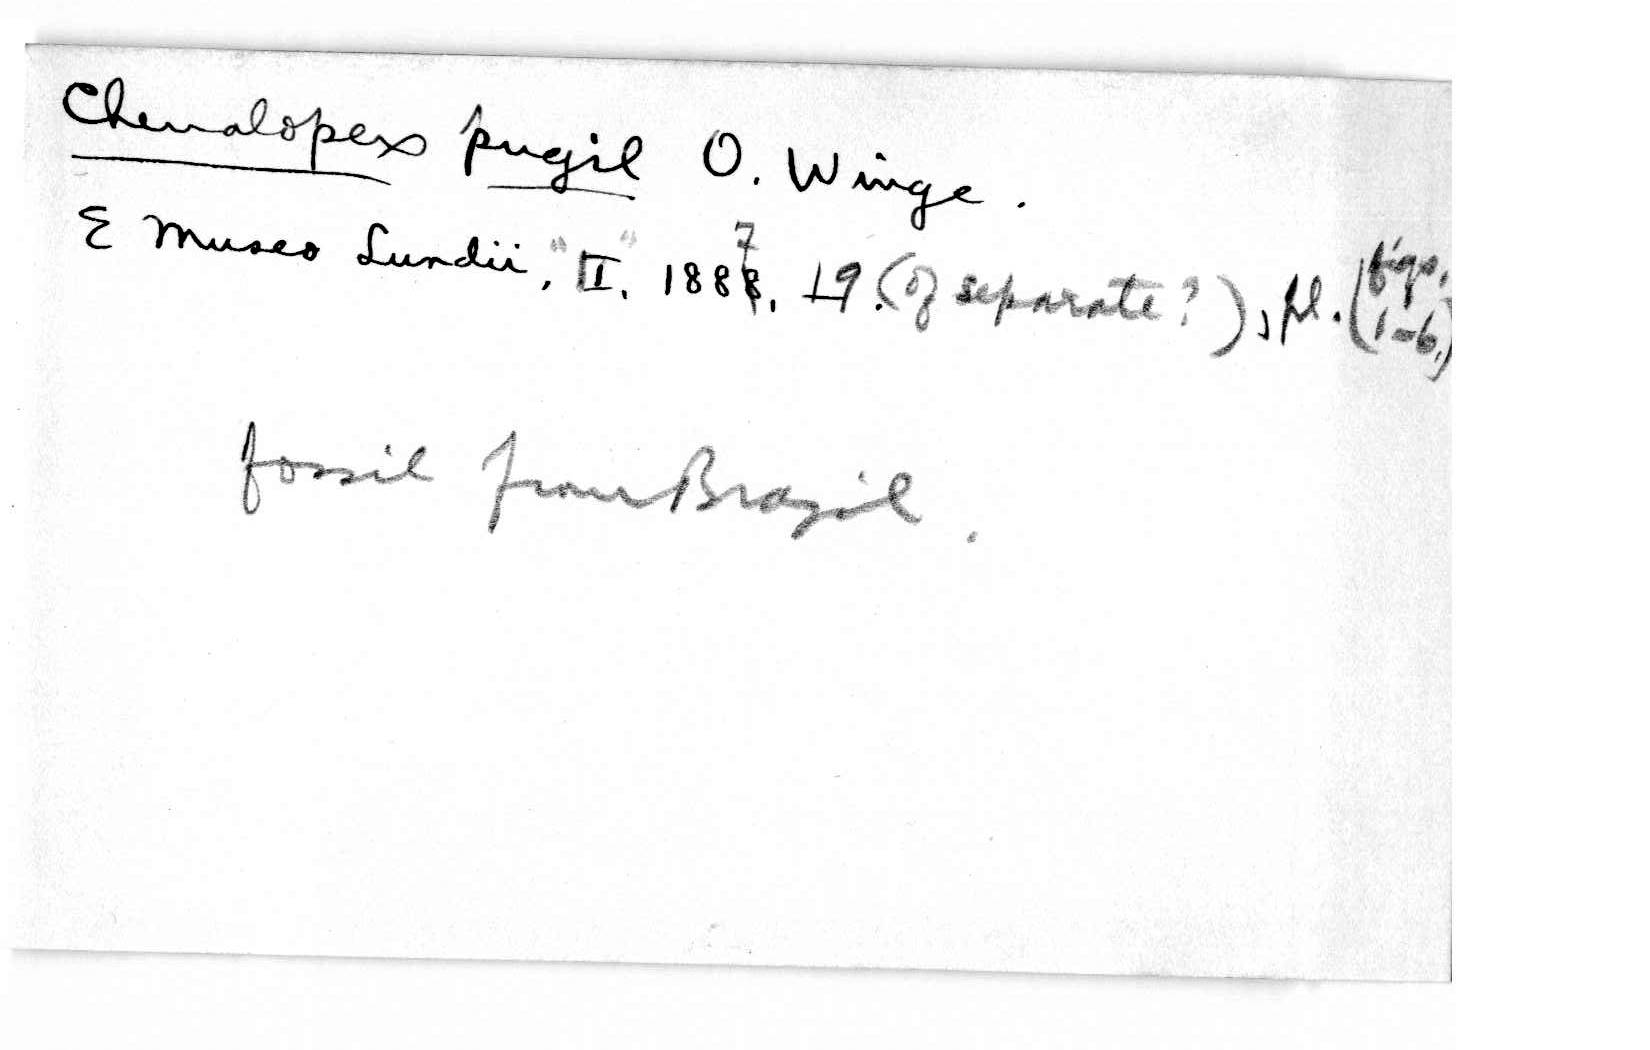 Chenalopex pugil O. Winge.
E Museo Lundii, "II". 1887. 19. (of separate?), pl. (figs. 1-6.)
fossil from Brazil.